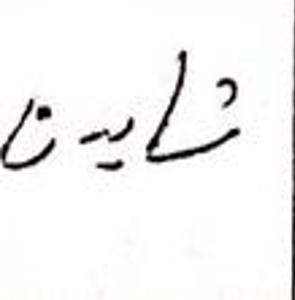 شایدن